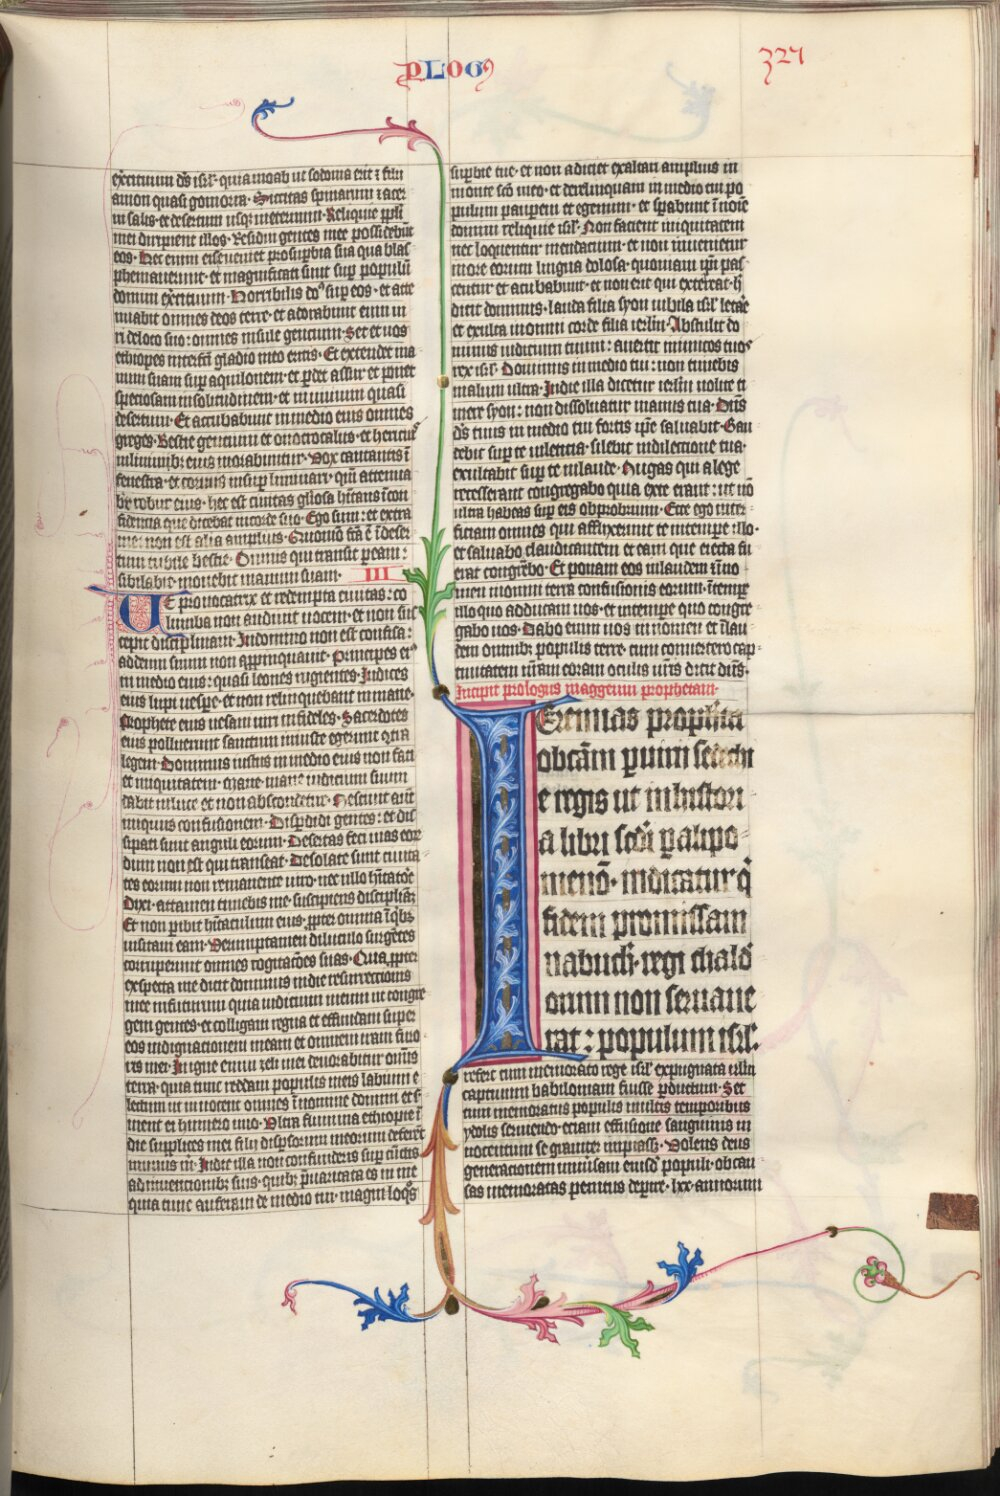 PLOGꝰ
327
exẽcituum dñs isrl̃· quia moab ut sodoma erit ⁊ filii
amon quasi gomorra· Siccitas spinarum ⁊ acer
ui salis· et desertum usqꝫ in eternum· Reliquie ppl̃i
mei diripient illos· Residui gentes mee possidebũt
eos· Hec enim eis eueniet pro suꝑbia sua qua blas
phemauerunt· et magnificati sunt suꝑ populũ
domini exẽcituum· Horribilis dñs suꝑ eos· et atte
nuabit omnes deos terre· et adorabunt eum ui
ri de loco suo: omnes insule gentium· Set et uos
ethiopes interfc̃i gladio meo eritis· Et extendet ma
num suam suꝑ aquilonem· et ꝑdet assur et ponet
speciosam in solitudinem· et in inuium quasi
desertum· Et accubabunt in medio eius omnes
greges· Bestie gentium et onocrotalus· et hericiꝰ
in liminibꝫ eius morabuntur· Vox cantantis ĩ
fenestra· et coruus in suꝑliminari· qm̃ attenua
bo robur eius· hec est ciuitas gl̃iosa hĩtans ĩ con
fidentia que dicebat in corde suo· Ego sum: et extra
me non est alia amplius· Quomõ fc̃a ẽ ĩ deser
tum cubile bestie· Omnis qui transit ꝑ eam:
sibilabit· mouebit manum suam· III
VE prouocatrix et redempta ciuitas: co
lumba non audiuit uocem· et non sus
cepit disciplinam· In domino non est confisa:
ad deum suum non appinquauit· Principes eiꝰ
in medio eius: quasi leones rugientes· Iudices
eius lupi uespe· et non relinquebant in mane·
Prophete eius uesani uiri infideles· Sacerdotes
eius polluerunt sanctum iniuste egerunt cont̃
legem· Dominus iustus in medio eius non faci
et iniquitatem· Mane mane iudicium suum
dabit in luce et non abscondetur· Nesciuit aũt
iniquus confusionem· Disꝑdidi gentes: et dis
sipati sunt anguli eorum· Desertas feci uias eor
dum non est qui transeat· Desolate sunt ciuita
tes eorum non remanente uiro· nec ullo hĩtatõe
Dixi· attamen timebis me· suscipiens disciplinã
Et non ꝑibit hĩtaculum eius· ꝓpter omnia ĩ qⁱbꝫ
uisitaui eam· Verumptamen diluculo surgẽtes
corruperunt omnes cogitacões suas· Qua ꝓpter
expecta me dicit dominus in die resurrectionis
mee in futurum quia iudicium meum ut congre
gem gentes· et colligam regna et effundam super
eos indignationem meam et omnem iram furo
ris mei· In igne enim zeli mei deuorabitur om̃is
terra· quia tunc reddam populis meis labium e
lectum ut inuocent omnes ĩ nomine domini et s̃
uient ei humero uno· Vltra flumina ethiopie ĩ
de supplices mei filii disꝑsorum meorum deferẽt
munus m̃· In die illa non confunderis suꝑ cũctis
ad inuentionibꝫ tuis· quibꝫ p̃uaricata es in me
quia tunc auferam de medio tui· magni loqꝫ
superbie tue· et non adiciet exaltari amplius in
monte sc̃o meo· et derelinquam in medio tui po
pulum pauperem et egenum· et sꝑabunt ĩ noĩe
domini reliquie isrl̃· Non facient iniquitatem
nec loquentur mendacium· et non inuenietur
in ore eorum lingua dolosa· quoniam ip̃i pas
centur et accubabunt· et non erit qui exterreat· h̃
dicit dominus· lauda filia syon iubila isrl̃ letar̃
et exulta in omni corde filia ierl̃m· Abstulit do
minus iudicium tuum: auertit inimicos tuos
rex isrl̃· Dominus in medio tui: non timebis
malum ultra· In die illa dicetur ierl̃m noli ti
mere syon: non dissoluatur manus tua· Dñs
ds̃ tuus in medio tui fortis ip̃e saluabit· Gau
debit suꝑ te in leticia· silebit in dilectione tua·
exultabit suꝑ te in laude· Nugas qui a lege
recesserant congregabo quia ex te erant: ut nõ
ultra habeas suꝑ eis obprobrium· Ecce ego inter
ficiam omnes qui afflixerunt te in tempe illo·
et saluabo claudicantem et eam que eiecta fu
erat congr̃bo· Et ponam eos in laudem ĩ no
men in omni terra confusionis eorum· ĩ tempe
illo quo adducam uos· et in tempe quo congre
gabo uos· Dabo enim uos in nomen et ĩ lau
dem omnibꝫ populis terre· cum conuertero cap
tiuitatem ur̃am coram oculis ur̃is dicit dñs·
Incipit prologus in aggeum prophetam·
IEremias propheta
ob cãm ꝑiurii sedechi
e regis ut in histori
a libri sc̃di paralipo
menõ· indicatur q̃
fidem promissam
nabuch· regi chaldẽ
orum non seruaue
rat: populum isrl̃·
refert cum memorato rege isrl̃ expugnata ierl̃m
captiuum babiloniam fuisse ꝑductum· Set
cum memoratus populus multis temporibus
ydolis seruiendo· etiam effusione sanguinis in
nocentium se grauiter impiass; Volens deus
generationem uniu̾sam eiusd̾ populi· ob cau
sas memoratas penitus deꝑire· lxx· annorum